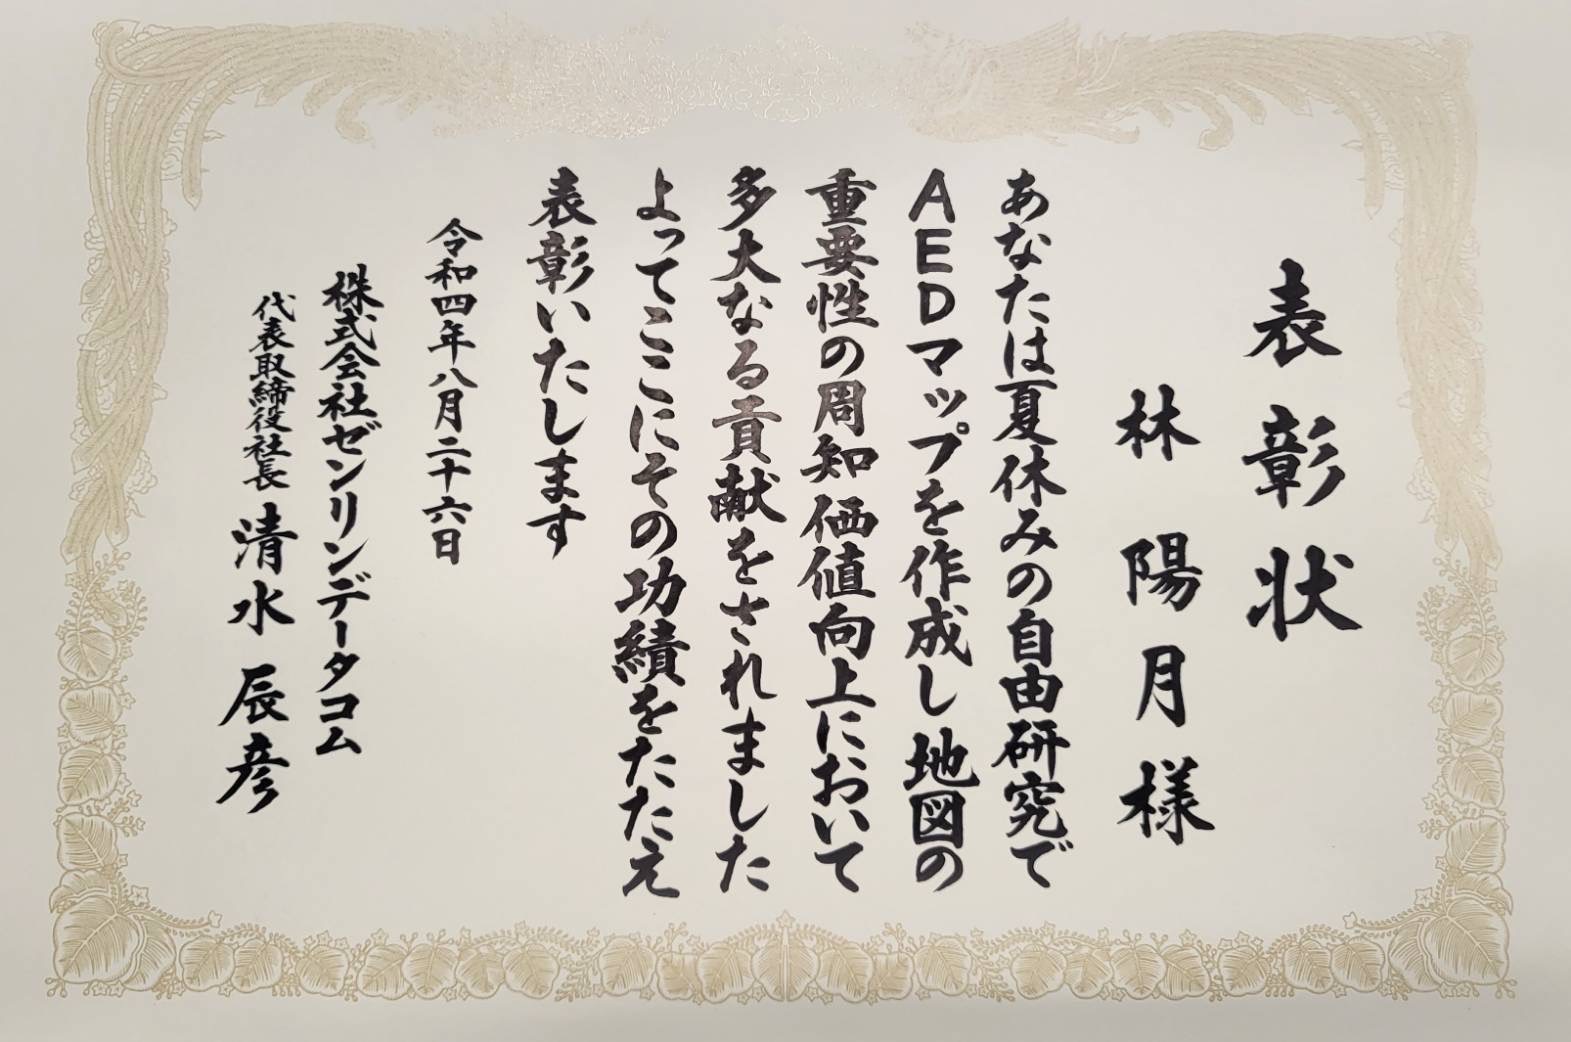 表彰状
林陽月様
あなたは夏休みの自由研究で
AEDマップを作成し地図の
重要性の周知価値向上において
多大なる貢献をされました
よってここにその功績をたたえ
表彰いたします
令和四年八月二十六日
株式会社ゼンリンデータコム
代表取締役社長 清水辰彦